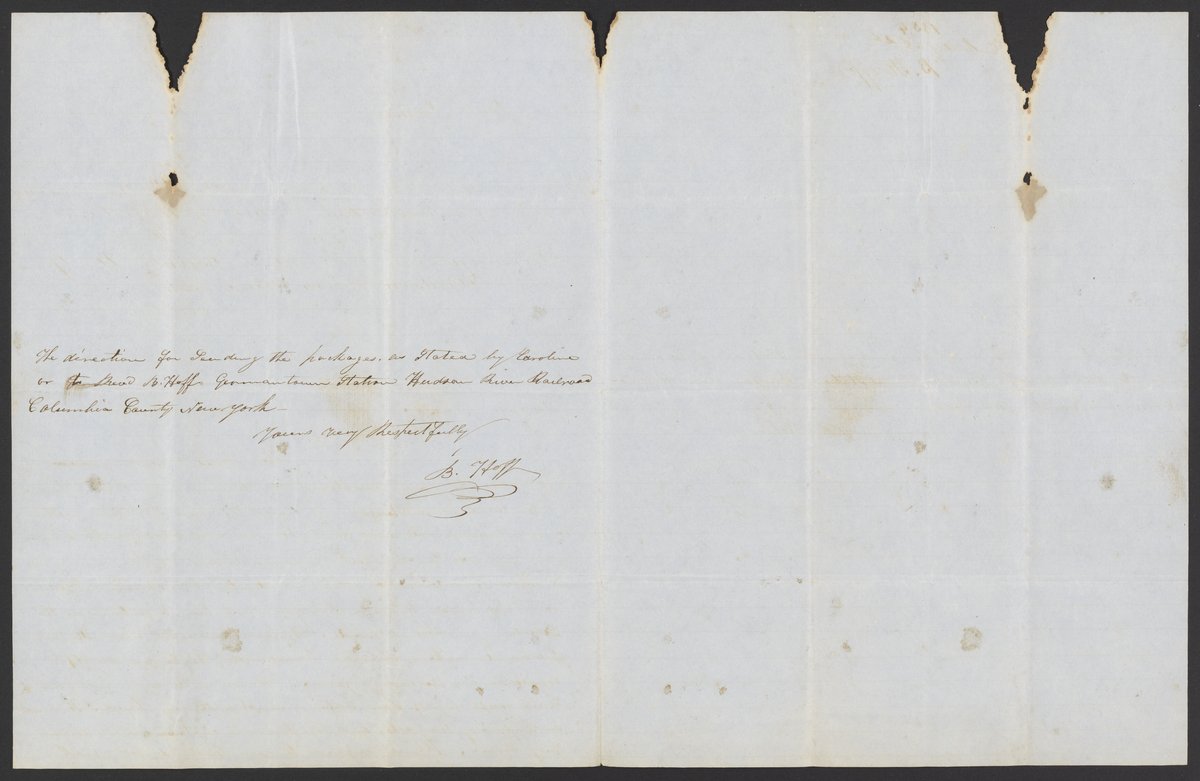 The direction for Sending the packages, as Stated by Caroline
or to Revd B. Hoff Germantown Station Hudson River Railroad
Columbia County New York
Yours very Respectfully
B. Hoff